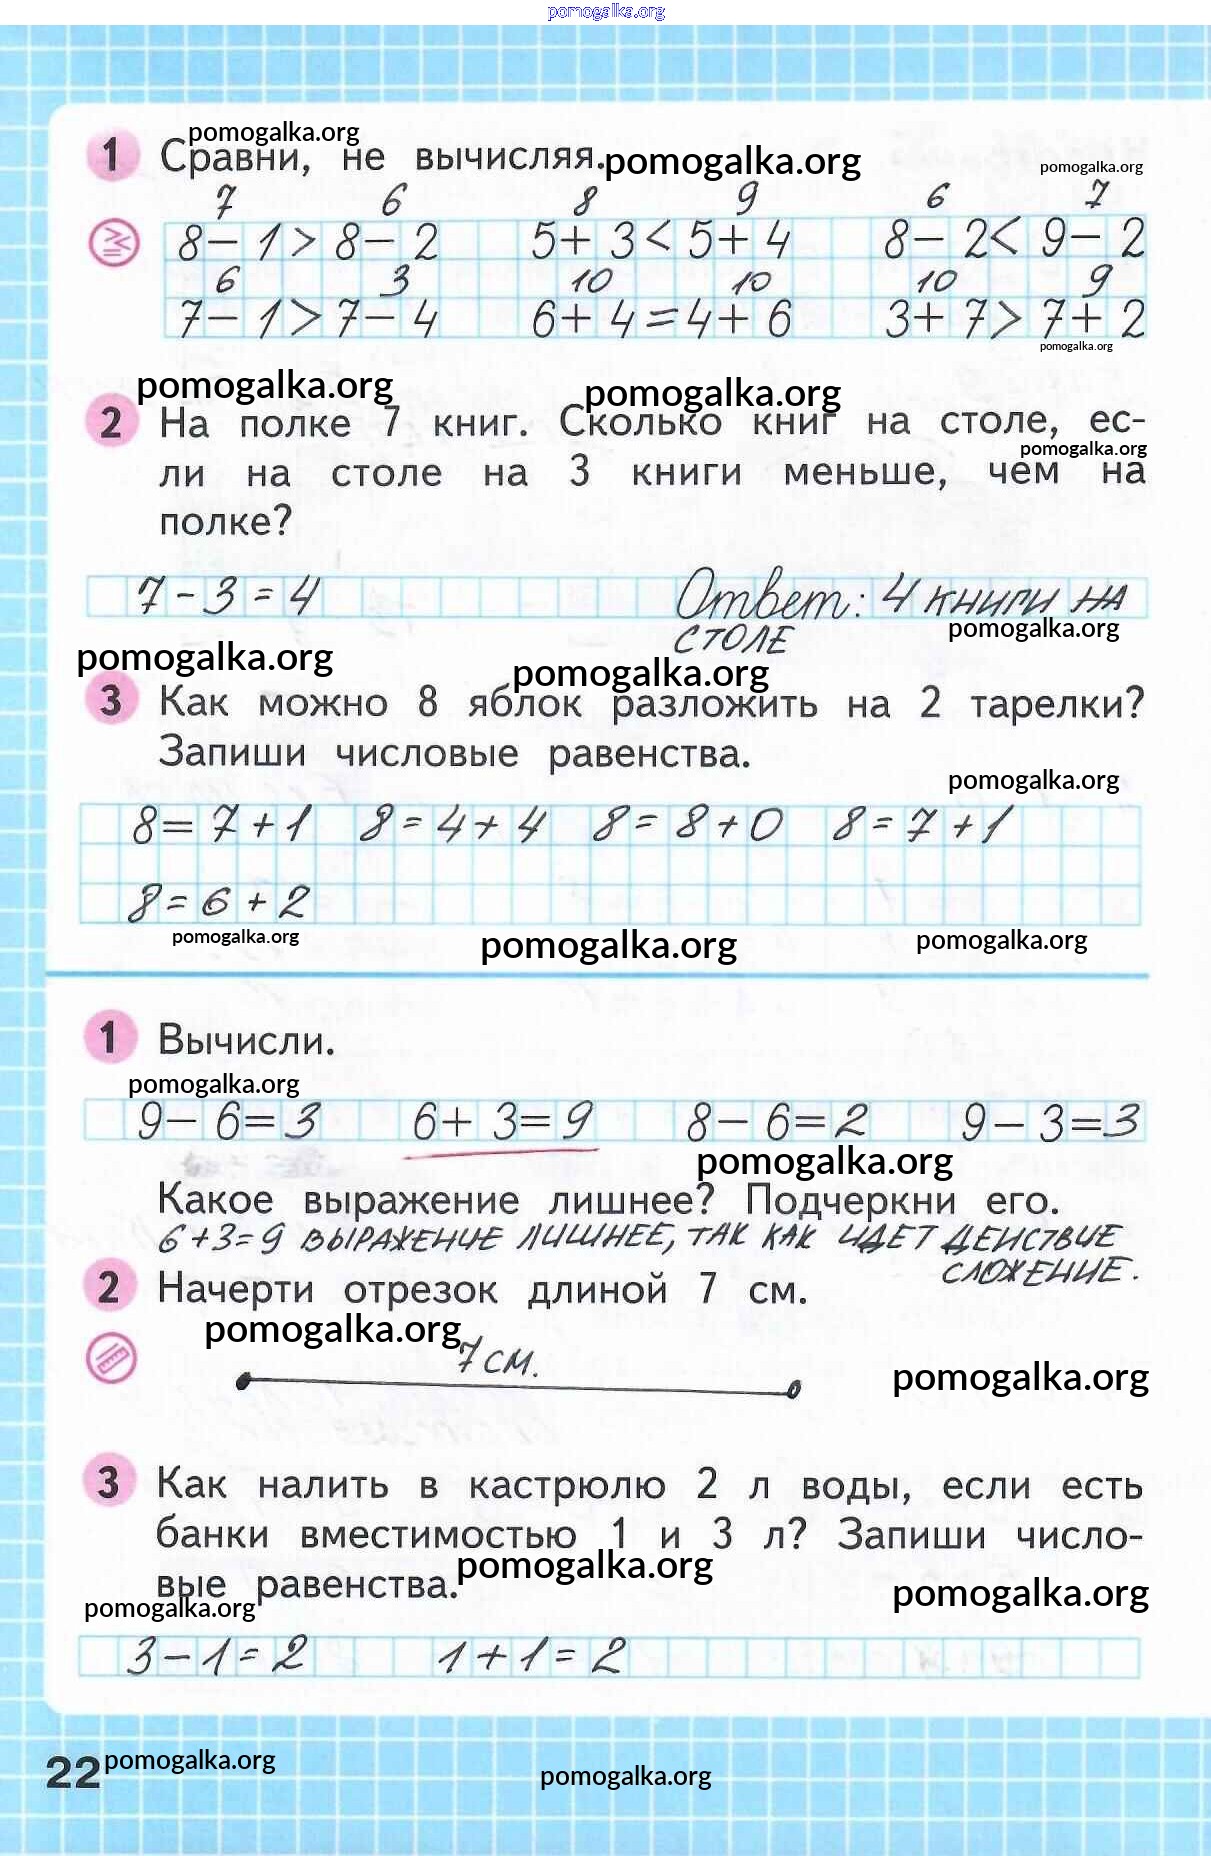 pomogalka.org
pomogalka.org
1 Сравни, не вычисляя. pomogalka.org pomogalka.org
7 6 8 9 6 7
8 - 1 > 8 - 2 5 + 3 < 5 + 4 8 - 2 < 9 - 2
6 3 10 10 10 9
7 - 1 > 7 - 4 6 + 4 = 4 + 6 3 + 7 > 7 + 2
pomogalka.org
pomogalka.org pomogalka.org
2 На полке 7 книг. Сколько книг на столе, ес-
pomogalka.org
ли на столе на 3 книги меньше, чем на
полке?
7 - 3 = 4 Ответ: 4 книги на
столе pomogalka.org
pomogalka.org pomogalka.org
3 Как можно 8 яблок разложить на 2 тарелки?
Запиши числовые равенства.
pomogalka.org
8 = 7 + 1 8 = 4 + 4 8 = 8 + 0 8 = 7 + 1
8 = 6 + 2
pomogalka.org pomogalka.org pomogalka.org
1 Вычисли.
pomogalka.org
9 - 6 = 3 6 + 3 = 9 8 - 6 = 2 9 - 3 = 3
pomogalka.org
Какое выражение лишнее? Подчеркни его.
6 + 3 = 9 выражение лишнее, так как идет действие
сложение.
2 Начерти отрезок длиной 7 см.
pomogalka.org
7 см.
pomogalka.org
3 Как налить в кастрюлю 2 л воды, если есть
банки вместимостью 1 и 3 л? Запиши число-
pomogalka.org
вые равенства.
pomogalka.org pomogalka.org
3 - 1 = 2 1 + 1 = 2
22 pomogalka.org pomogalka.org